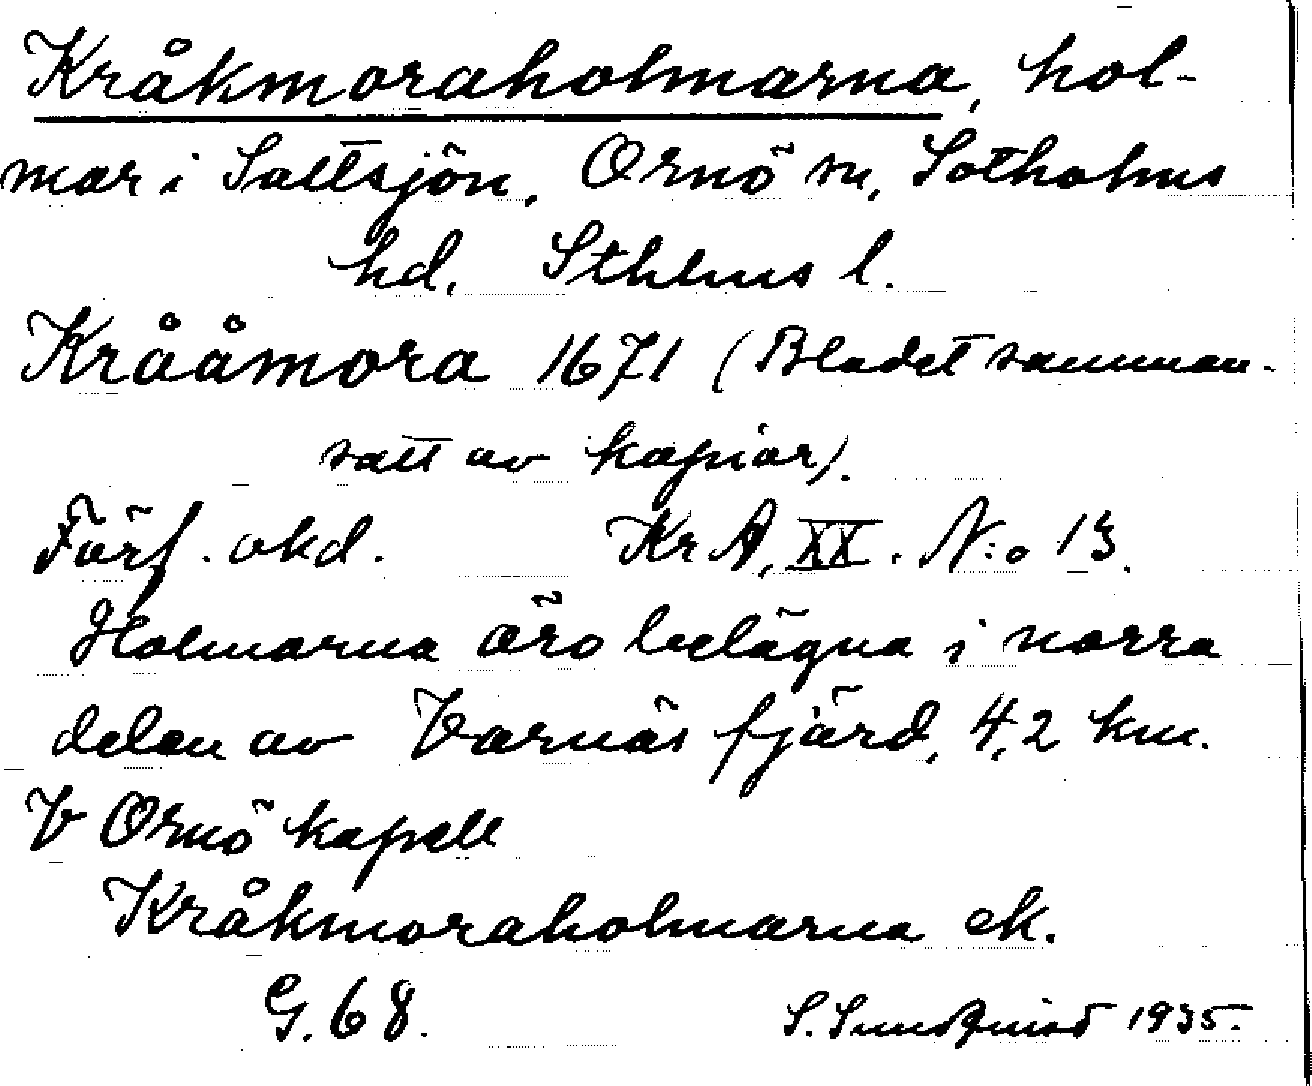 Kråkmoraholmarna, hol-
mar i Saltsjön, Ornö sn, Sotholms
hd. Sthlms l.
Krååmora 1671 (Bladet samman-
satt av kopior).
Förf. okd. Kr A, XX. N:o 13.
Holmarna äro belägna i norra
delen av Varnäs fjärd, 4,2 km.
V Ornö kapell
Kråkmoraholmarna ek.
G. 68.
S. Sundquist 1935.